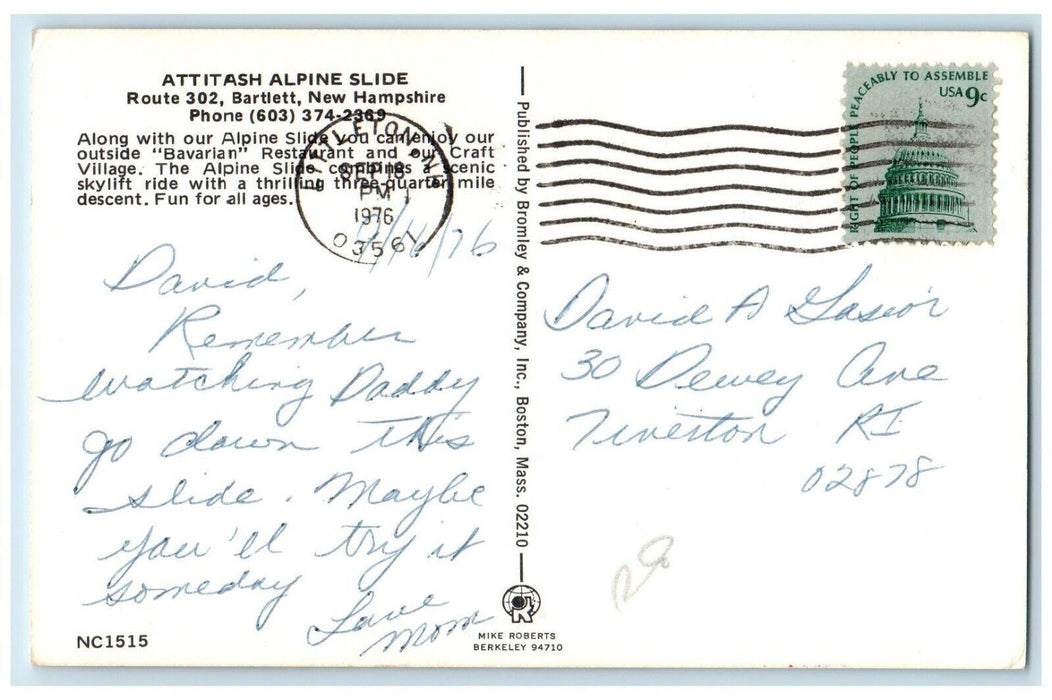 ATTITASH ALPINE SLIDE
Route 302, Bartlett, New Hampshire
Phone (603) 374-2369
Along with our Alpine Slide you can enjoy our
outside "Bavarian" Restaurant and our Craft
Village. The Alpine Slide combines a scenic
skylift ride with a thrilling three-quarter mile
descent. Fun for all ages.
LITTLETON, NH
SEP 18
PM
1976
03561
9/16/76
David,
Remember
watching Daddy
go down this
slide. Maybe
you'll try it
someday
Love
Mom
NC1515
Published by Bromley & Company, Inc., Boston, Mass. 02210
MIKE ROBERTS
BERKELEY 94710
RIGHT OF PEOPLE PEACEABLY TO ASSEMBLE
USA 9c
David A Gasior
30 Dewey Ave
Tiverton RI
02878